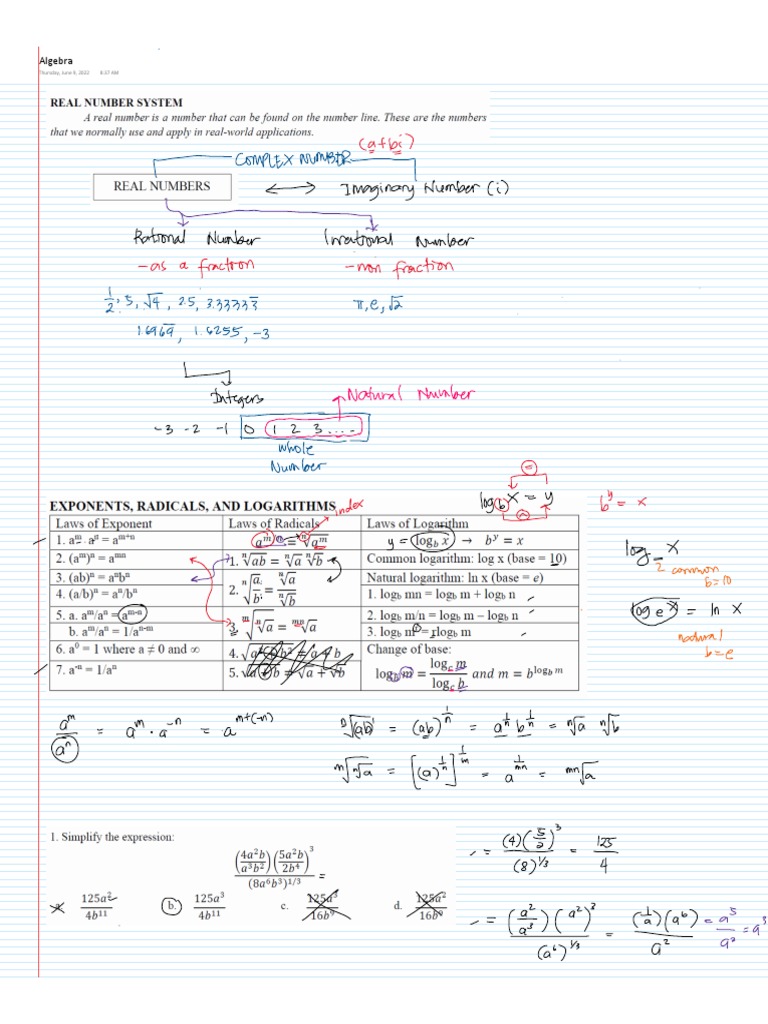 Algebra
Thursday, June 9, 2022 8:37 AM
REAL NUMBER SYSTEM
A real number is a number that can be found on the number line. These are the numbers
that we normally use and apply in real-world applications.
(a+bi)
COMPLEX NUMBER
REAL NUMBERS ↔ Imaginary Number (i)
Rational Number Irrational Number
- as a fraction - non fraction
1/2, 5, √4, 2.5, 3.33333 π, e, √2
1.6969, 1.6255, -3
Natural Number
Integers
-3 -2 -1 0 1 2 3 ....
whole
Number
=
log_b x = y
b^y = x
EXPONENTS, RADICALS, AND LOGARITHMS index
Laws of Exponent Laws of Radicals Laws of Logarithm
1. aᵐ · aⁿ = aᵐ⁺ⁿ a^(m/n) = ⁿ√aᵐ y = log_b x → b^y = x
2. (aᵐ)ⁿ = aᵐⁿ 1. ⁿ√ab = ⁿ√a ⁿ√b Common logarithm: log x (base = 10)
3. (ab)ⁿ = aⁿbⁿ 2. ⁿ√(a/b) = ⁿ√a/ⁿ√b Natural logarithm: ln x (base = e)
4. (a/b)ⁿ = aⁿ/bⁿ 1. log_b mn = log_b m + log_b n
5. a. aᵐ/aⁿ = aᵐ⁻ⁿ 3. ᵐ√ⁿ√a = ᵐⁿ√a 2. log_b m/n = log_b m – log_b n
b. aᵐ/aⁿ = 1/aⁿ⁻ᵐ 3. log_b mʳ = rlog_b m
6. a⁰ = 1 where a ≠ 0 and ∞ 4. √a² + b² = a + b Change of base:
7. a⁻ⁿ = 1/aⁿ 5. √a + b = √a + √b log_b m = log_c m / log_c b and m = b^(log_b m)
log_ x
2 common
b=10
log_e x = ln x
natural
b=e
aᵐ/aⁿ = aᵐ · a⁻ⁿ = a^(m+(-n))
ⁿ√(ab)¹ = (ab)^(1/n) = a^(1/n) b^(1/n) = ⁿ√a ⁿ√b
ᵐ√ⁿ√a = [(a)^(1/n)]^(1/m) = a^(1/mn) = ᵐⁿ√a
1. Simplify the expression:
(4a²b/a³b²)(5a²b/2b⁴)³/(8a⁶b³)^(1/3) =
a. 125a²/4b¹¹ b. 125a³/4b¹¹ c. 125a³/16b⁹ d. 125a²/16b⁹
= (4)(5/2)³/(8)^(1/3) = 125/4
= (a²/a³)(a²)³/(a⁶)^(1/3) = (1/a)(a⁶)/a² = a⁵/a² = a³